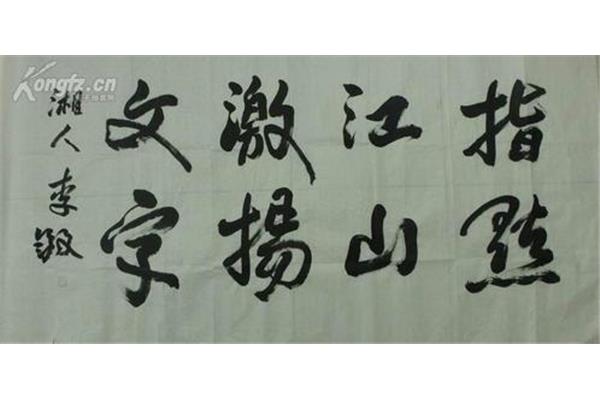 指點
江山
激揚
文字
湘人李敏
Kongfz.cn